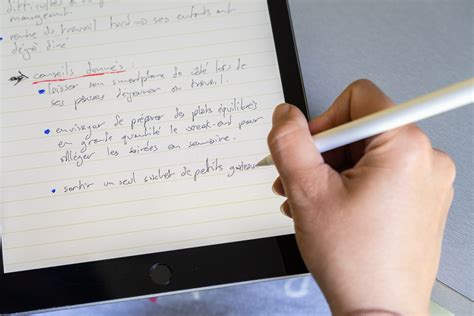 difficultés à
management.
• rentre du travail tard => ses enfants ont
déjà dîné
→ conseils donnés :
• laisser son smartphone de côté lors de
ses pauses déjeuner au travail.
• envisager de préparer des plats équilibrés
en grande quantité le week-end pour
alléger les soirées en semaine.
• sortir un seul sachet de petits gâteaux